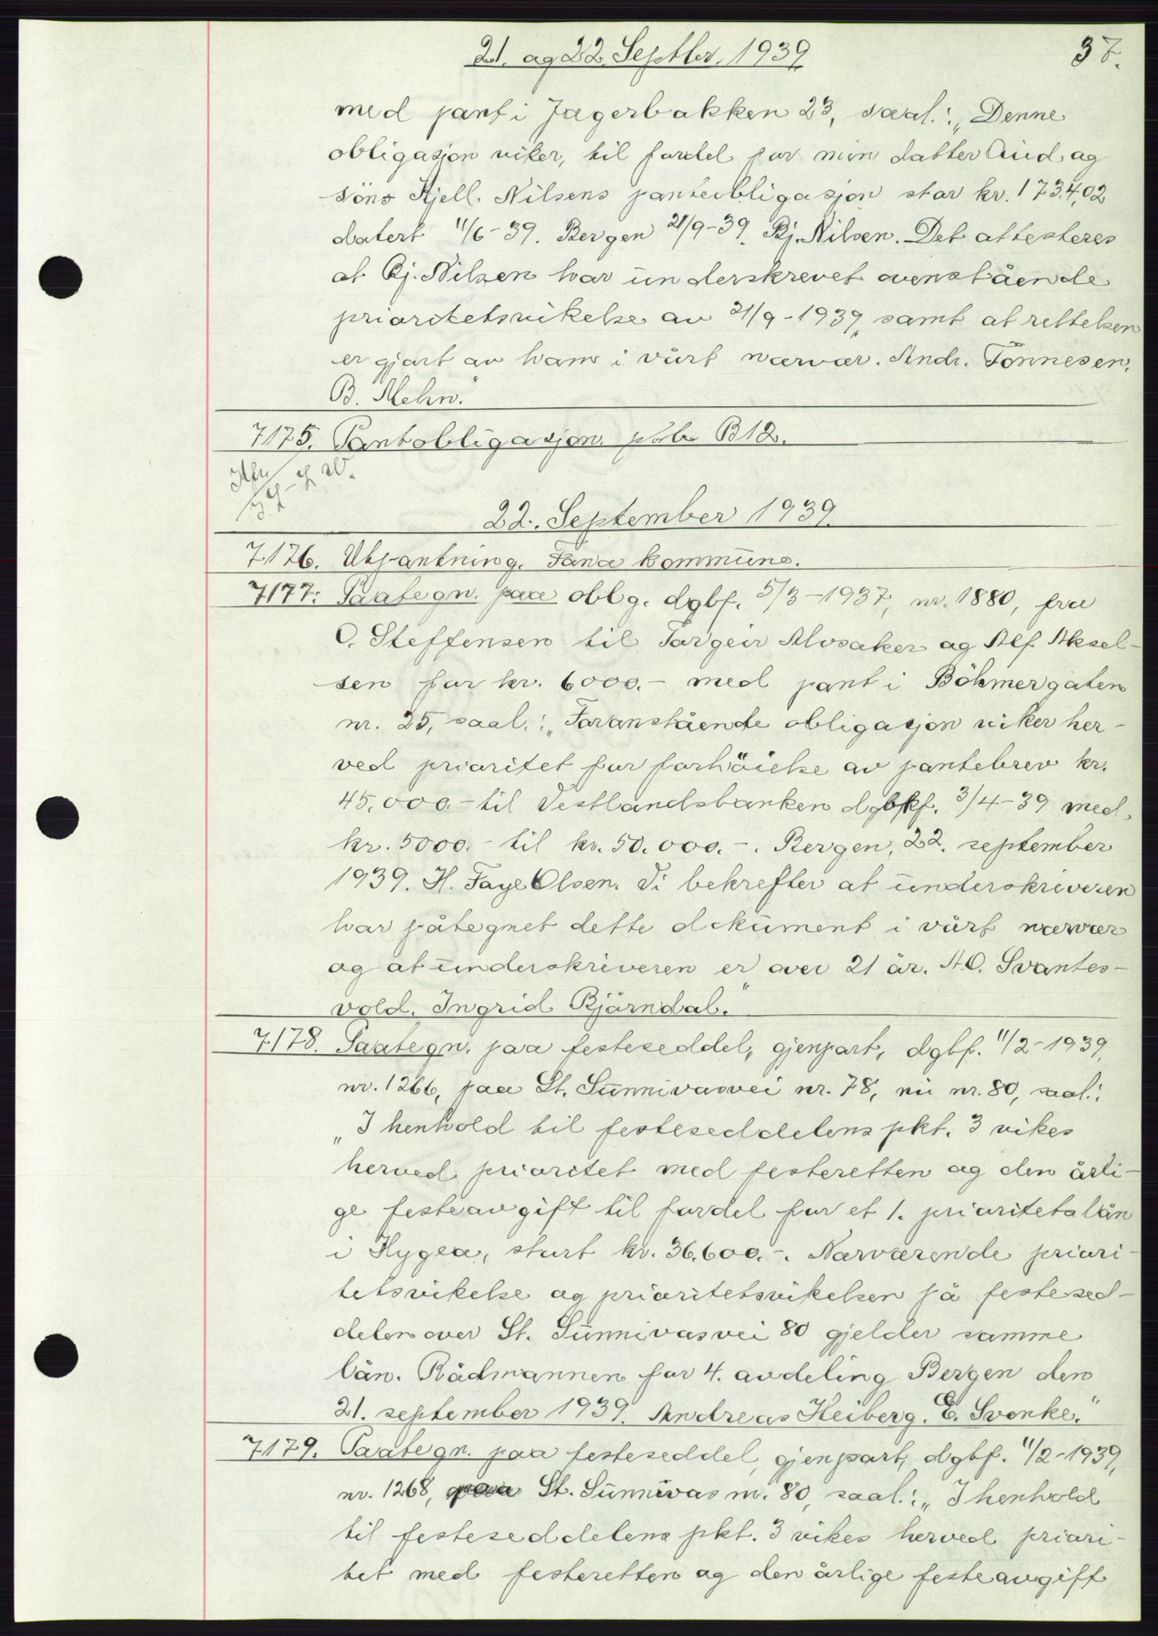 21. og 22. Septbr. 1939.
37.
med pant i Jægerbakken 23, saal.: „Denne
obligasjon viker, til fordel for min datter Aud og
söns Kjell Nilsens panteobligasjon stor kr. 1734,02
datert 11/6-39. Bergen 21/9-39. Bj. Nilsen. Det attesteres
at Bj. Nilsen har underskrevet ovenstående
prioritetsvikelse av 21/9-1939, samt at rettelsen
er gjort av ham i vårt nærvær. Andr. Tönnesen.
B. Mehn."
7175. Pantobligasjon B12.
22. September 1939.
7176. Utpantning. Fana kommune.
7177. Paategn. paa oblg. dgbf. 5/3-1937, nr. 1880, fra
O. Steffensen til Torgeir Alvsaker og Alf Aksel-
sen for kr. 6000.- med pant i Böhmergaten
nr. 25, saal.: „Foranstående obligasjon viker her-
ved prioritet for forhöielse av pantebrev kr.
45.000.- til Vestlandsbanken dgbkf. 3/4-39 med
kr. 5000.- til kr. 50.000.-. Bergen, 22. september
1939. H. Faye Olsen. Vi bekrefter at underskriveren
har påtegnet dette dokument i vårt nærvær
og at underskriveren er over 21 år. A.O. Svantes-
vold. Ingrid Bjørndal."
7178. Paategn. paa festeseddel, gjenpart, dgbf. 11/2-1939,
nr. 1266, paa St. Sunnivasvei nr. 78, nu nr. 80, saal.:
„I henhold til festeseddelens pkt. 3 vikes
herved prioritet med festeretten og den årli-
ge festeavgift til fordel for et 1. prioritetslån
i Hygea, stort kr. 36.600.-. Nærværende priori-
tetsvikelse og prioritetsvikelsen på festesed-
delen over St. Sunnivasvei 80 gjelder samme
lån. Rådmannen for 4. avdeling Bergen den
21. september 1939. Andreas Heiberg. E. Svenke."
7179. Paategn. paa festeseddel, gjenpart, dgbf. 11/2-1939,
nr. 1268, paa St. Sunnivas nr. 80, saal.: „I henhold
til festeseddelens pkt. 3 vikes herved priori-
tet med festeretten og den årlige festeavgift